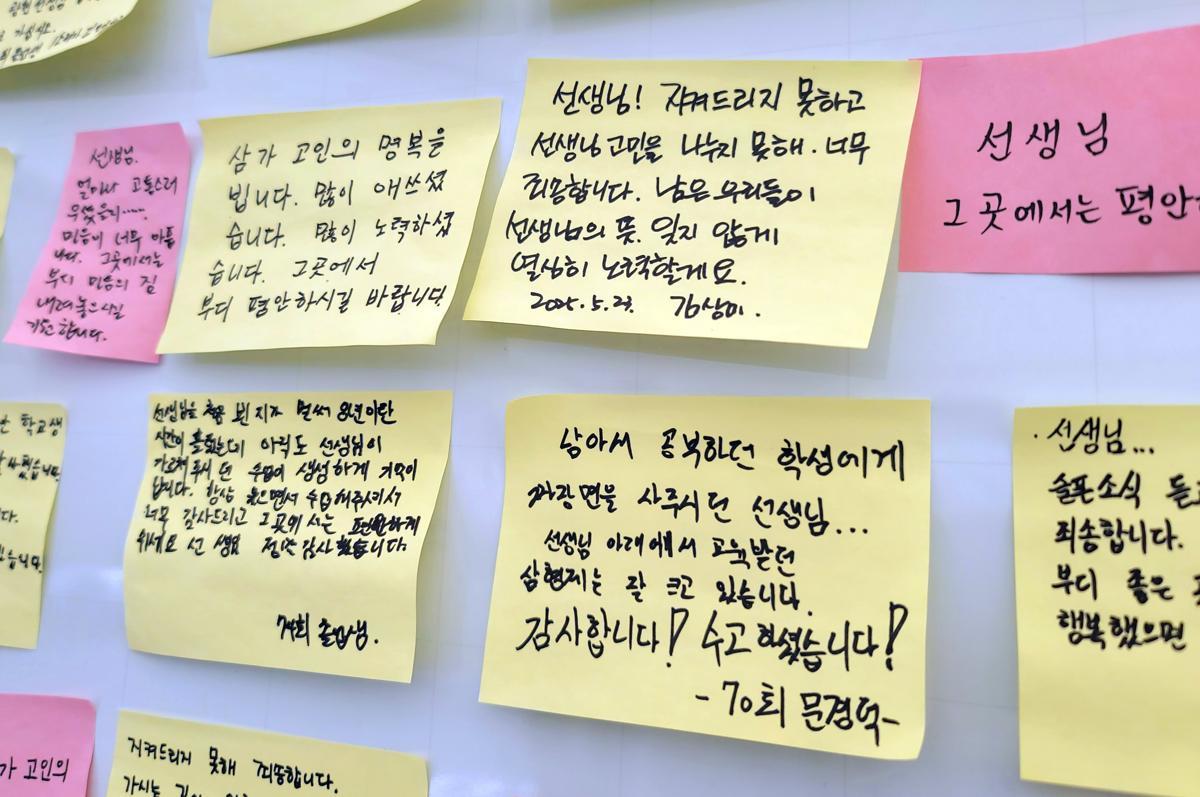 삼가 고인의 명복을
빕니다. 많이 애쓰셨
습니다. 많이 노력하셨
습니다. 그곳에서
부디 평안하시길 바랍니다
선생님! 지켜드리지 못하고
선생님 고민을 나누지 못해. 너무
죄송합니다. 남은 우리들이
선생님의 뜻. 잊지 않게
열심히 노력할게요.
2025. 5. 23. 김상미.
선생님
그곳에서는 평안
선생님.
얼마나 고통스러
우셨을지.....
마음이 너무 아픕
니다. 그곳에서는
부디 마음의 짐
내려놓으시길
기원합니다.
학교생
습니다.
선생님을 처음 뵌 지가 벌써 8년이란
시간이 흘렀는데 아직도 선생님이
가르쳐주시던 수업이 생생하게 기억이
납니다. 항상 웃으면서 수업해주셔서
너무 감사드리고 그곳에서는 편안하게
쉬세요 선생님 정말 감사했습니다.
74회 졸업생.
남아서 공부하던 학생에게
짜장면을 사주시던 선생님...
선생님 아래에서 교육받던
삼형제는 잘 크고 있습니다.
감사합니다! 수고하셨습니다!
-70회 문경덕-
· 선생님...
슬픈소식 들
죄송합니다.
부디 좋은
행복했으면
가 고인의
지켜드리지 못해 죄송합니다.
가시는